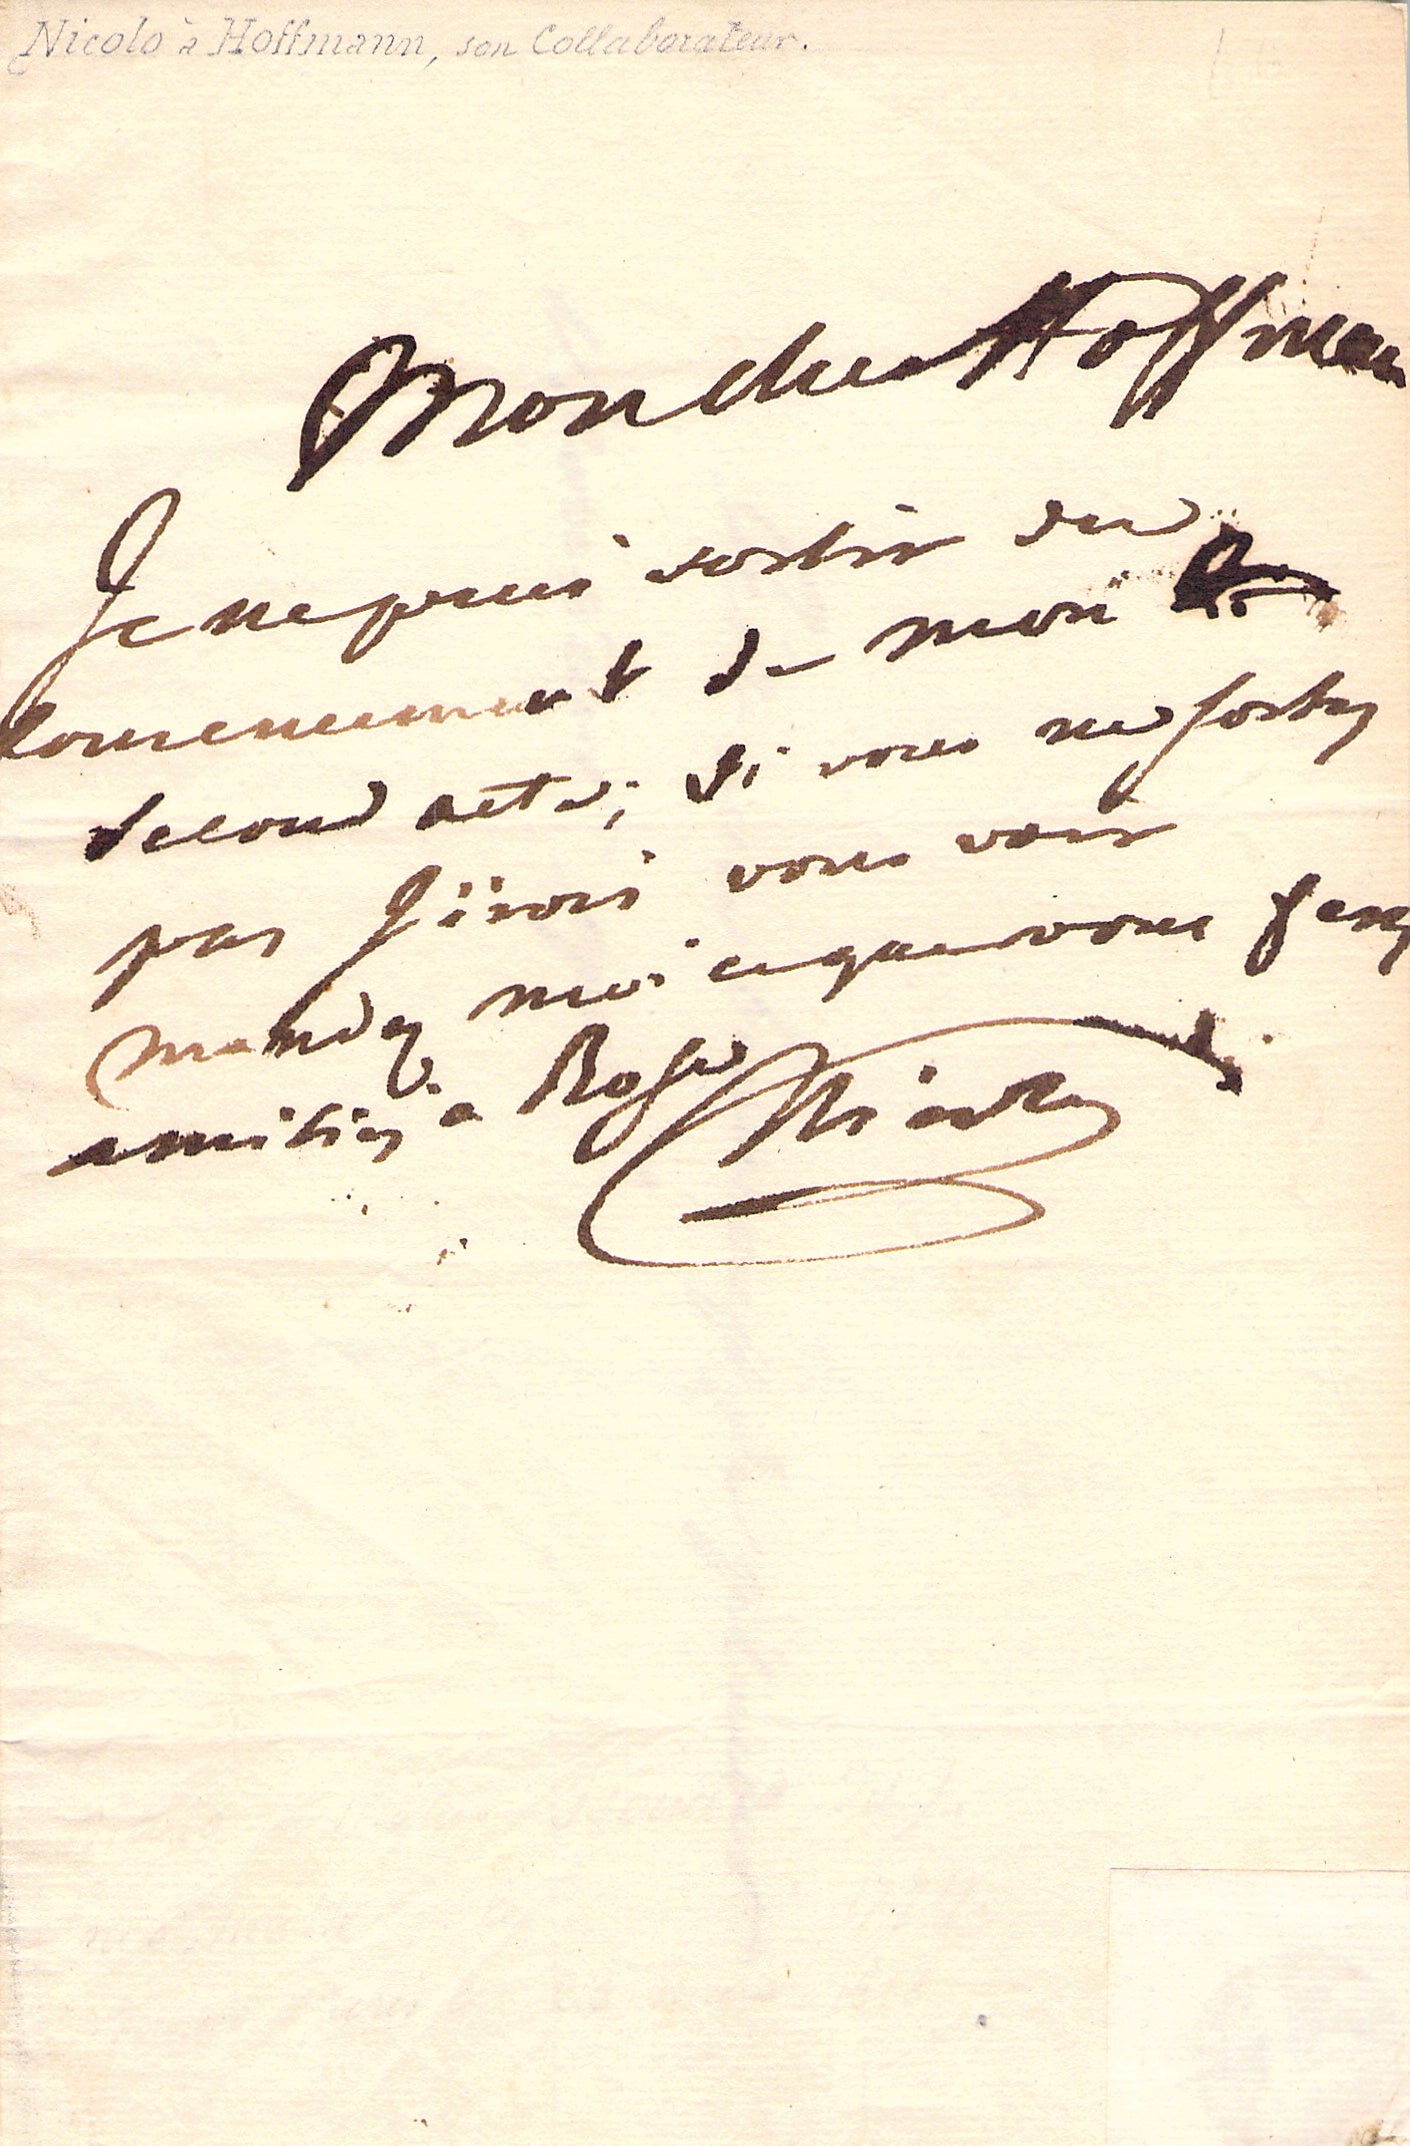 Nicolo à Hoffmann, son Collaborateur.
Mon cher Hoffman
Je ne puis sortir du
comencement de mon
second acte; si vous ne sortez
pas j'irois vous voir
mandez moi ce que vous ferez
amitiés à Rose Nicolo